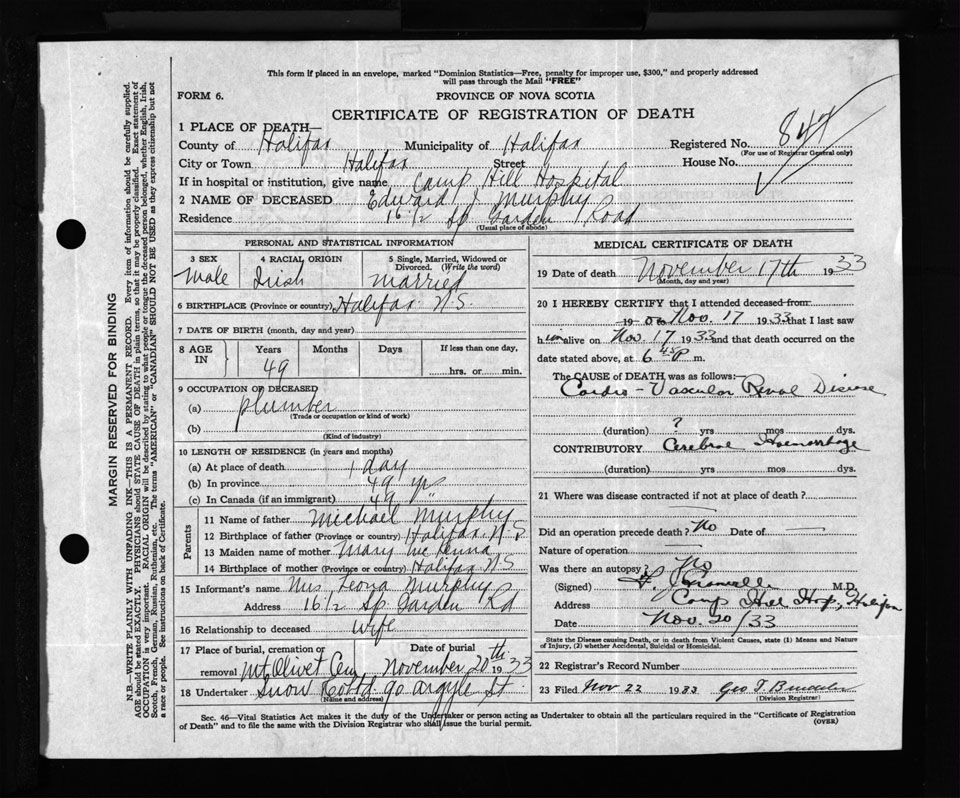 This form if placed in an envelope, marked "Dominion Statistics—Free, penalty for improper use, $300," and properly addressed
will pass through the Mail "FREE"
FORM 6.
PROVINCE OF NOVA SCOTIA
CERTIFICATE OF REGISTRATION OF DEATH
1 PLACE OF DEATH—
County of Halifax Municipality of Halifax Registered No. 847
(For use of Registrar General only)
City or Town Halifax Street House No.
If in hospital or institution, give name Camp Hill Hospital
2 NAME OF DECEASED Edward J. Murphy
Residence 16 1/2 Sp Garden Road
(Usual place of abode)
PERSONAL AND STATISTICAL INFORMATION
3 SEX 4 RACIAL ORIGIN 5 Single, Married, Widowed or
Divorced. (Write the word)
Male Irish Married
6 BIRTHPLACE (Province or country) Halifax N.S.
7 DATE OF BIRTH (month, day and year)
8 AGE IN Years Months Days If less than one day,
49 hrs. or min.
9 OCCUPATION OF DECEASED
(a) plumber
(Trade or occupation or kind of work)
(b)
(Kind of industry)
10 LENGTH OF RESIDENCE (in years and months)
(a) At place of death 1 day
(b) In province 49 yrs
(c) In Canada (if an immigrant) 49 "
Parents
11 Name of father Michael Murphy
12 Birthplace of father (Province or country) Halifax N.S
13 Maiden name of mother Mary McKenna
14 Birthplace of mother (Province or country) Halifax N.S
15 Informant's name Mrs Leona Murphy
Address 16 1/2 Sp. Garden Rd
16 Relationship to deceased wife
17 Place of burial, cremation or Date of burial
removal Mt Olivet Cem November 20th 1933
18 Undertaker Snow Co Ltd. 90 Argyle St
(Name and address)
MEDICAL CERTIFICATE OF DEATH
19 Date of death November 17th 1933
(Month, day and year)
20 I HEREBY CERTIFY that I attended deceased from
19 on Nov. 17 1933 that I last saw
him alive on Nov. 17 1933 and that death occurred on the
date stated above, at 6 45 p m.
The CAUSE of DEATH was as follows:
Cardio-Vascular Renal Disease
(duration) ? yrs mos dys.
CONTRIBUTORY Cerebral Haemorrhage
(duration) yrs mos dys.
21 Where was disease contracted if not at place of death?
Did an operation precede death? No Date of
Nature of operation
Was there an autopsy? No
(Signed) M.D.
Address Camp Hill Hosp, Halifax
Date Nov. 20/33
State the Disease causing Death, or in death from Violent Causes, state (1) Means and Nature
of Injury, (2) whether Accidental, Suicidal or Homicidal.
22 Registrar's Record Number
23 Filed Nov 22 1933 Geo T
(Division Registrar)
Sec. 46—Vital Statistics Act makes it the duty of the Undertaker or person acting as Undertaker to obtain all the particulars required in the "Certificate of Registration
of Death" and to file the same with the Division Registrar who shall issue the burial permit.
(OVER)
MARGIN RESERVED FOR BINDING
N.B.—WRITE PLAINLY WITH UNFADING INK—THIS IS A PERMANENT RECORD. Every item of information should be carefully supplied.
AGE should be stated EXACTLY. PHYSICIANS should STATE CAUSE OF DEATH in plain terms, so that it may be properly classified. Exact statement of
OCCUPATION is very important. RACIAL ORIGIN will be described by stating to what people or tongue the deceased person belonged, whether English, Irish,
Scotch, French, German, Russian, Ruthenian, etc. The terms "AMERICAN" or "CANADIAN" SHOULD NOT BE USED as they express citizenship but not
a race or people. See instructions on back of Certificate.